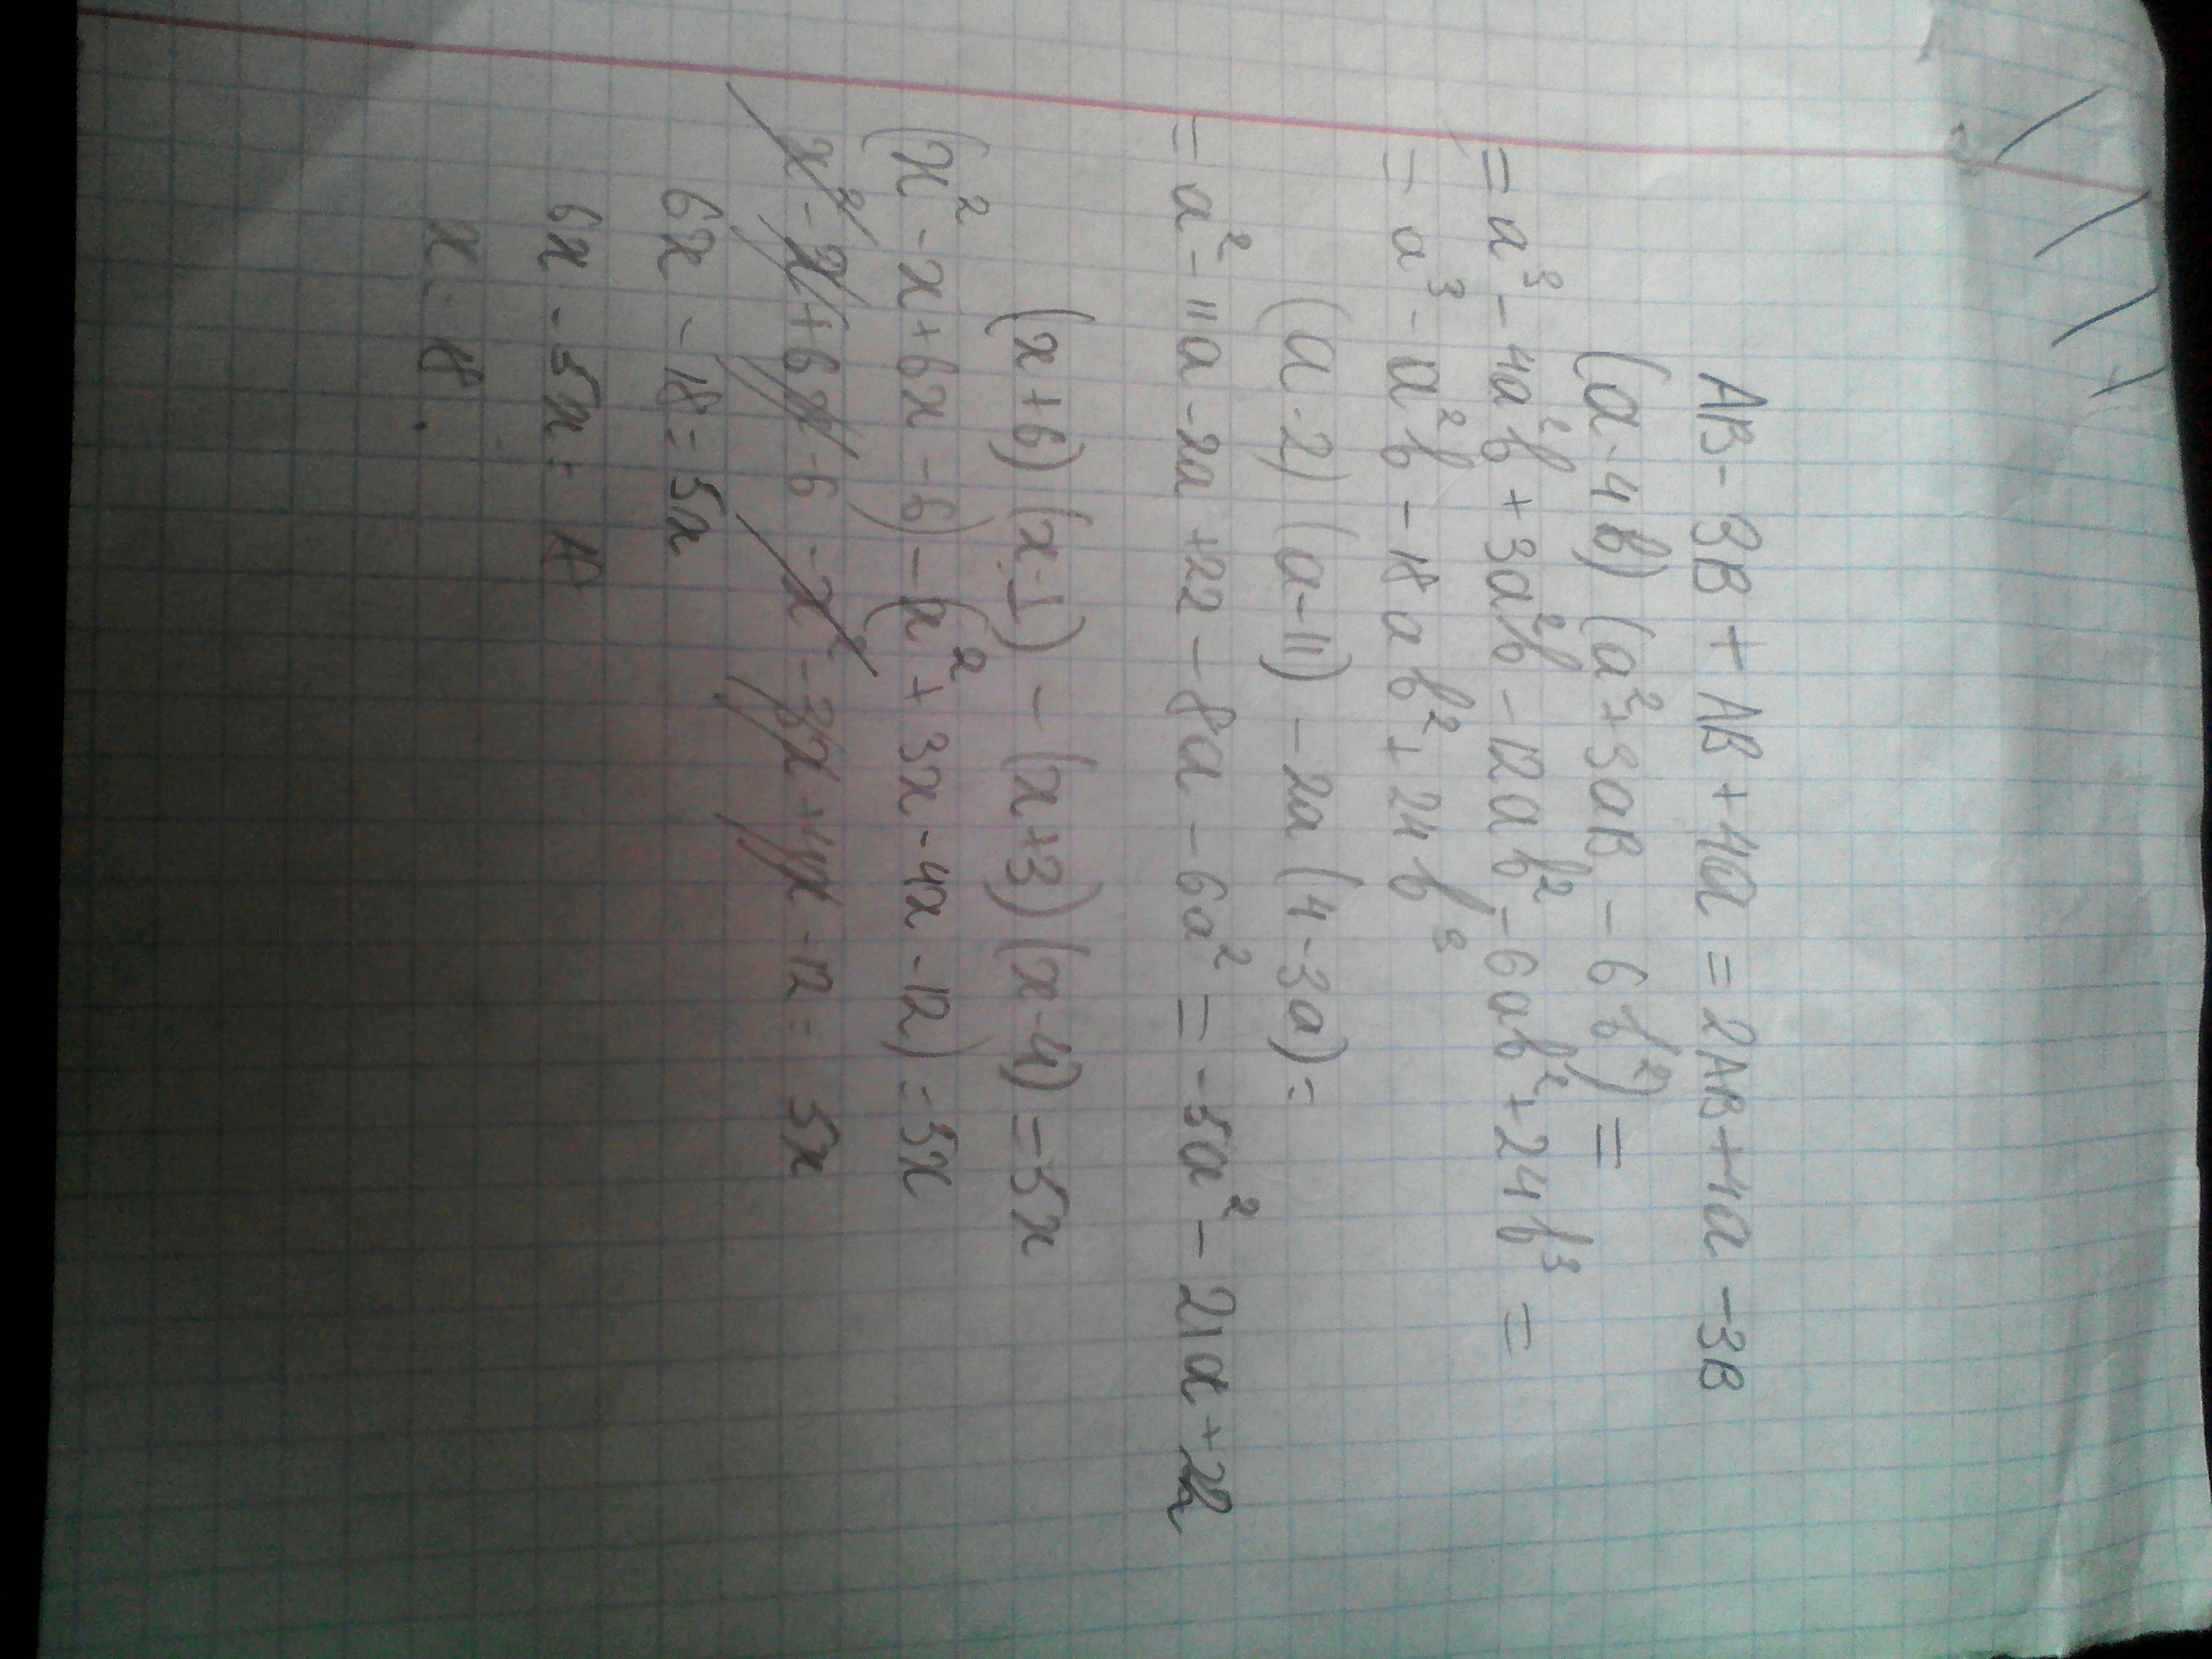 AB - 3B + AB + 4a = 2AB + 4a - 3B
(a - 4b) (a² + 3aB - 6b²) =
= a³ - 4a²b + 3a²b - 12ab² - 6ab² + 24b³ =
= a³ - a²b - 18ab² + 24b³
(a - 2) (a - 11) - 2a (4 - 3a) =
= a² - 11a - 2a + 22 - 8a - 6a² = -5a² - 21a + 22
(x + 6) (x - 1) - (x + 3) (x - 4) = 5x
(x² - x + 6x - 6) - (x² + 3x - 4x - 12) = 5x
x² - x + 6x - 6 - x² - 3x + 4x - 12 = 5x
6x - 18 = 5x
6x - 5x = 18
x = 18.